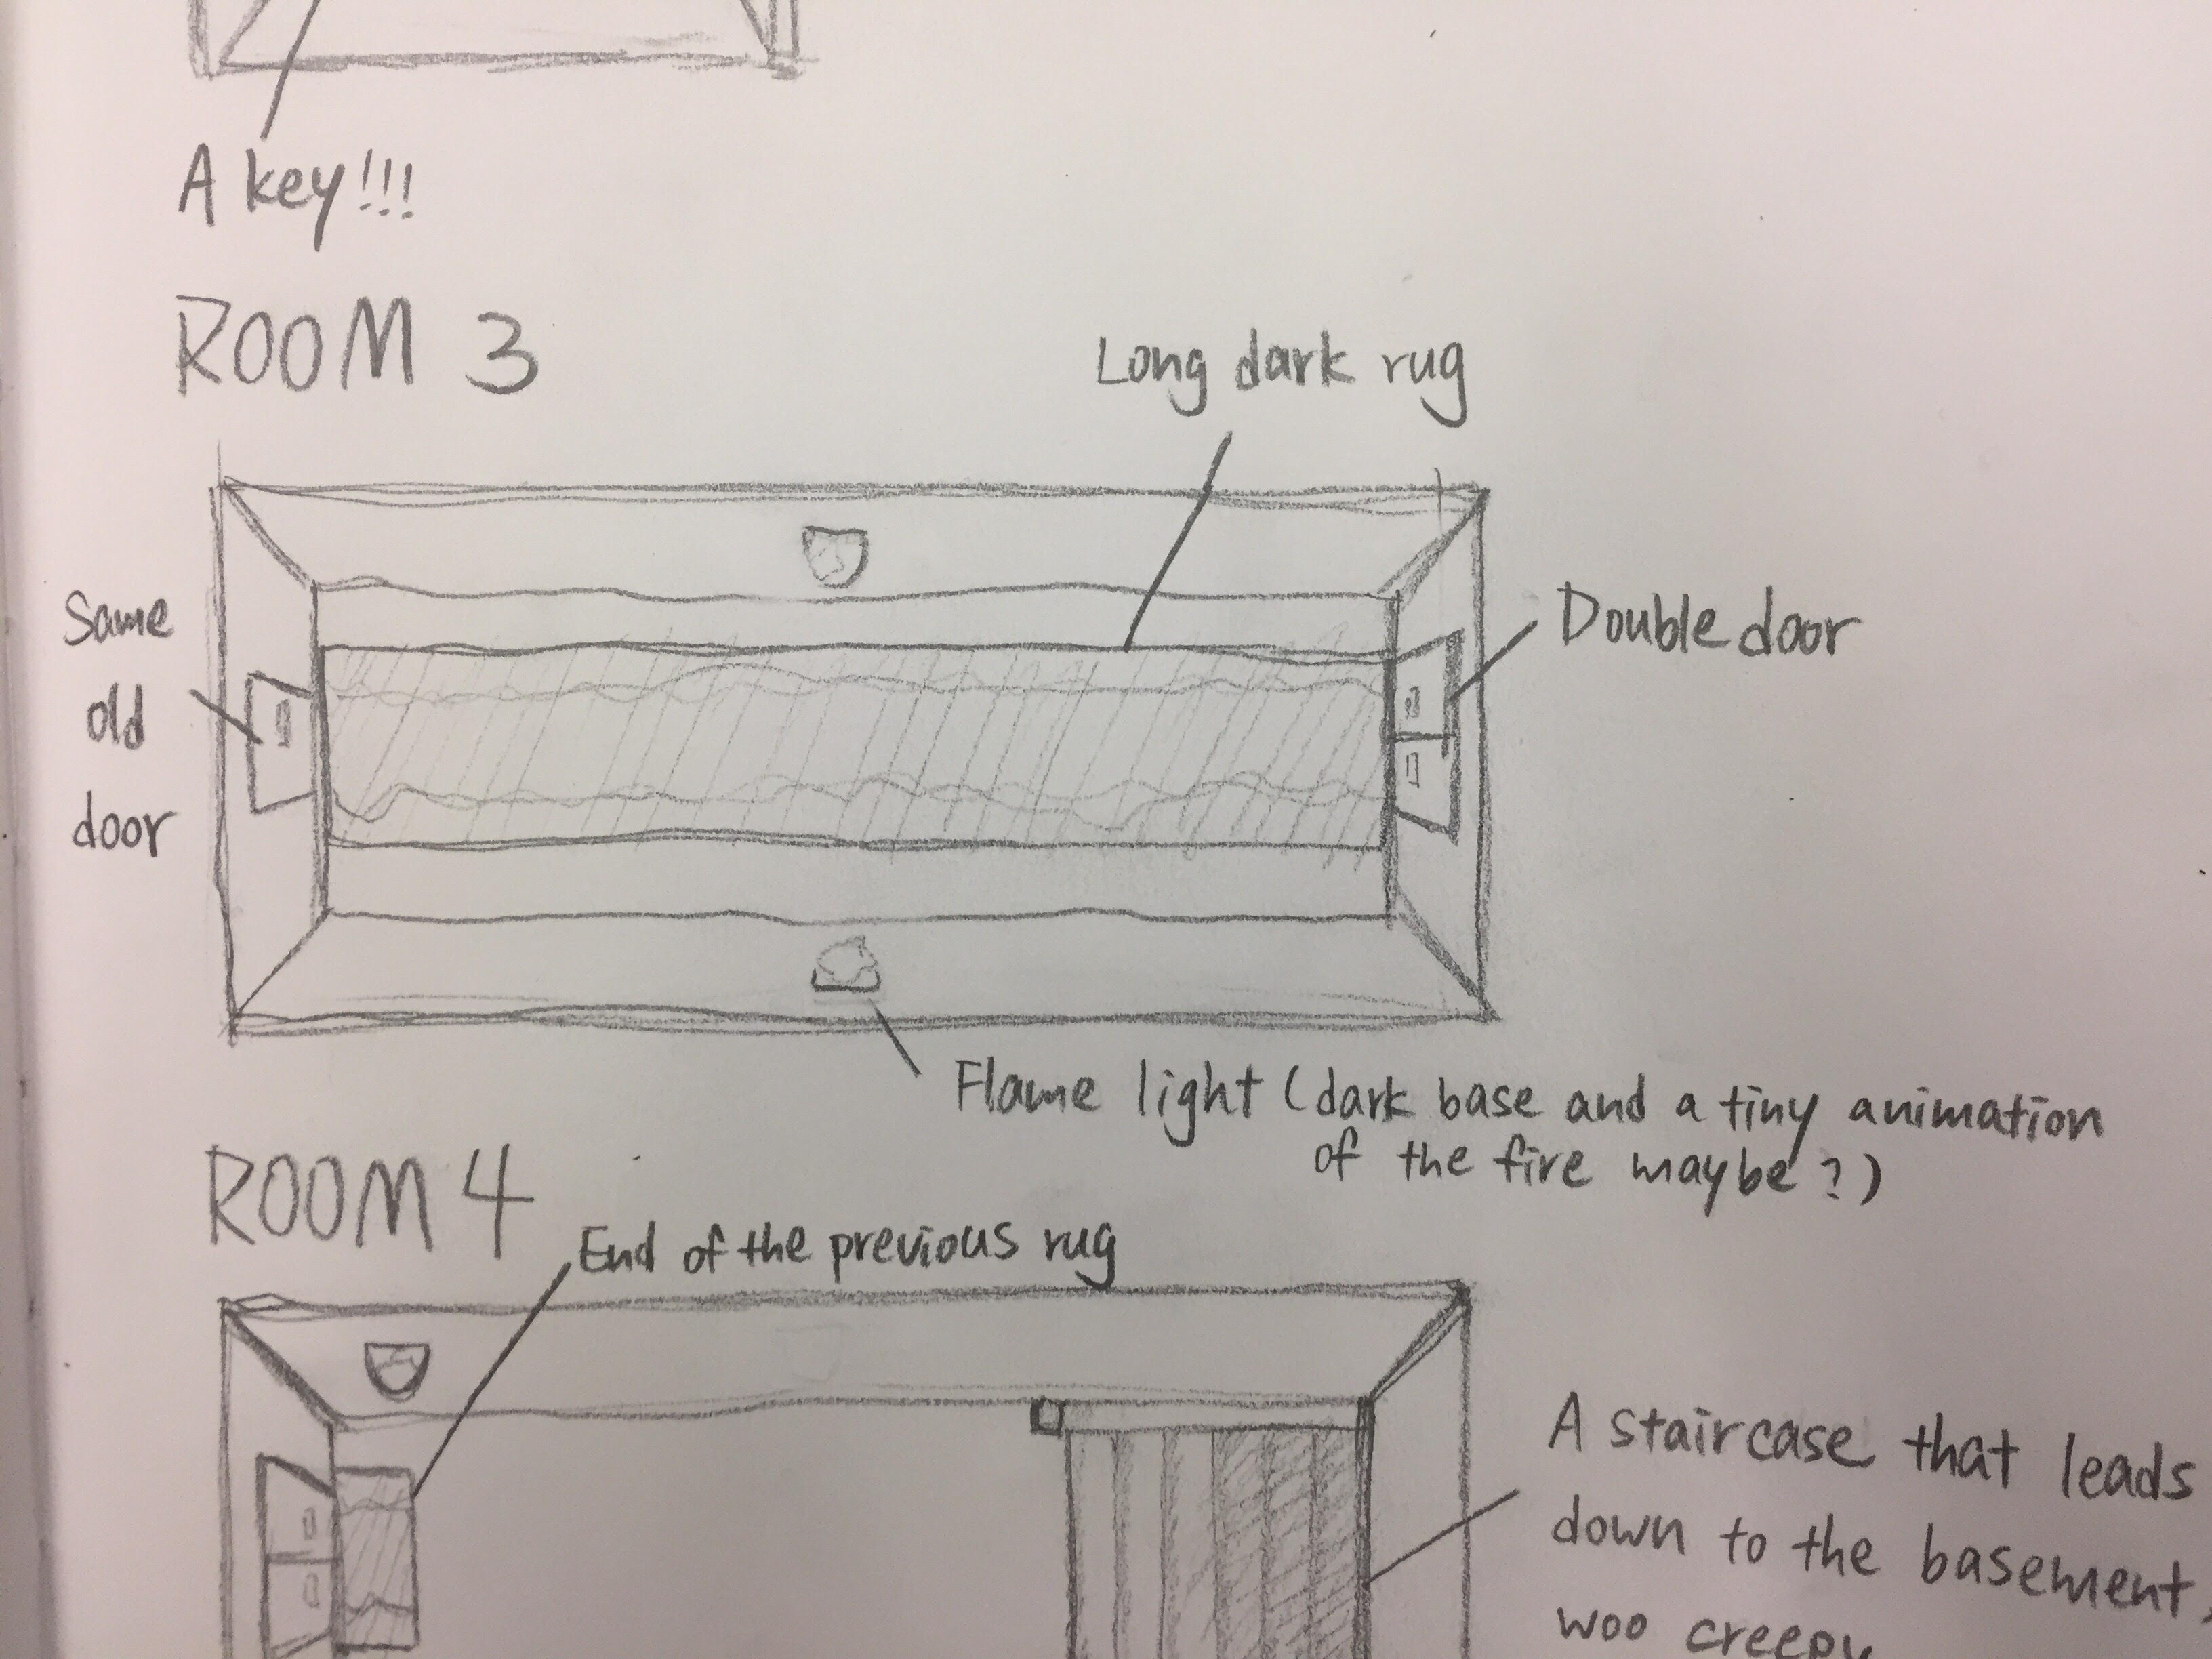 A key!!!
ROOM 3
Long dark rug
Same
old
door
Double door
Flame light (dark base and a tiny animation
of the fire maybe?)
ROOM 4
End of the previous rug
A staircase that leads
down to the basement,
woo creepy